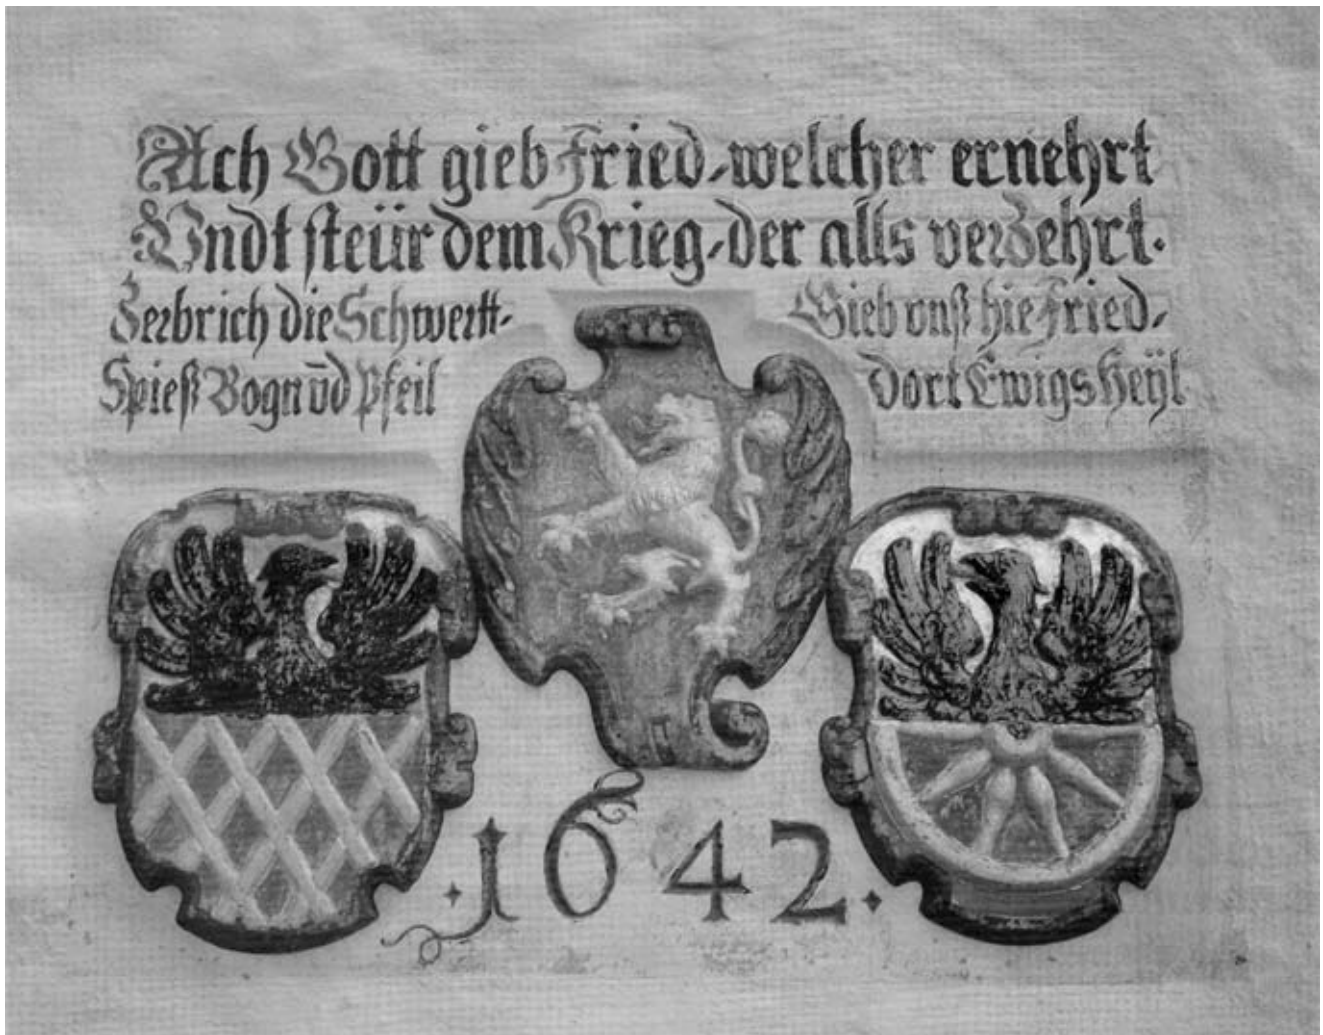 Ach Gott gieb Fried, welcher ernehrt
Vndt steür dem Krieg, der alls verzehrt.
Zerbrich die Schwertt,
Spieß Bogn ūd Pfeil
Gieb vnß hie Fried,
dort Ewigs Heÿl
.1642.